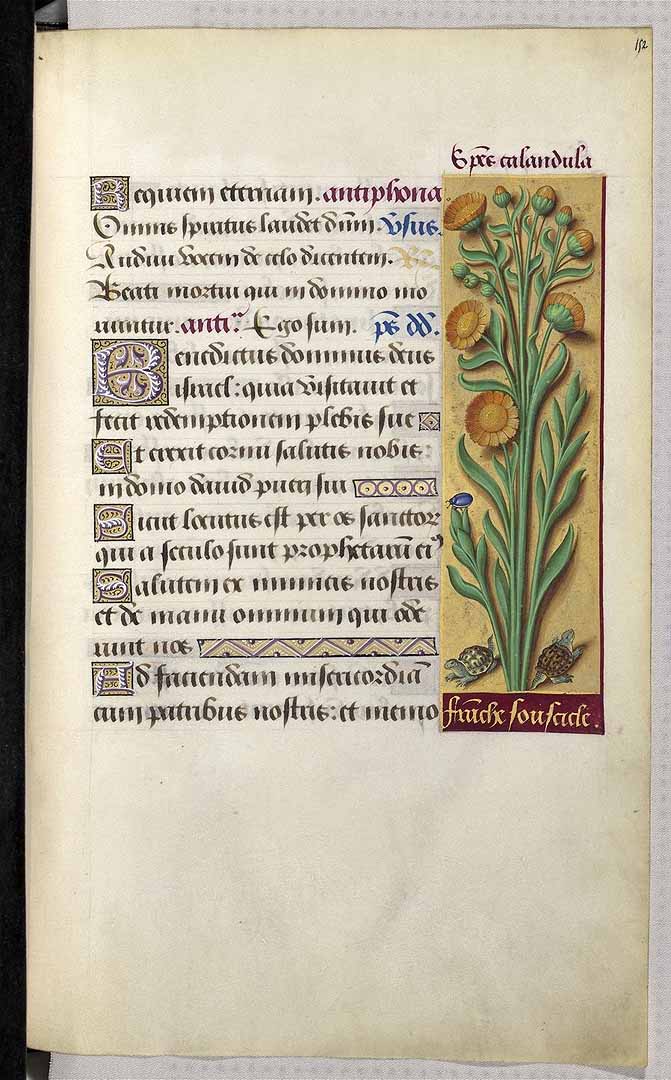 152
Spēs calandula
Requiem eternam. antiphona
Omnis spiritus laudet dūm. Vsus.
Audiui vocem de celo dicentem.
Beati mortui qui in domino mo
riuntur. anti. Ego sum. ps dd.
Benedictus dominus deus
israel: quia visitauit et
fecit redemptionem plebis sue
Et erexit cornu salutis nobis:
in domo dauid pueri sui
Sicut locutus est per os sanctor
qui a seculo sunt prophetarū ei9
Salutem ex inimicis nostris
et de manu omnium qui ode
runt nos
Ad faciendam misericordiā
cum patribus nostris: et memo
frāche soulscicle.